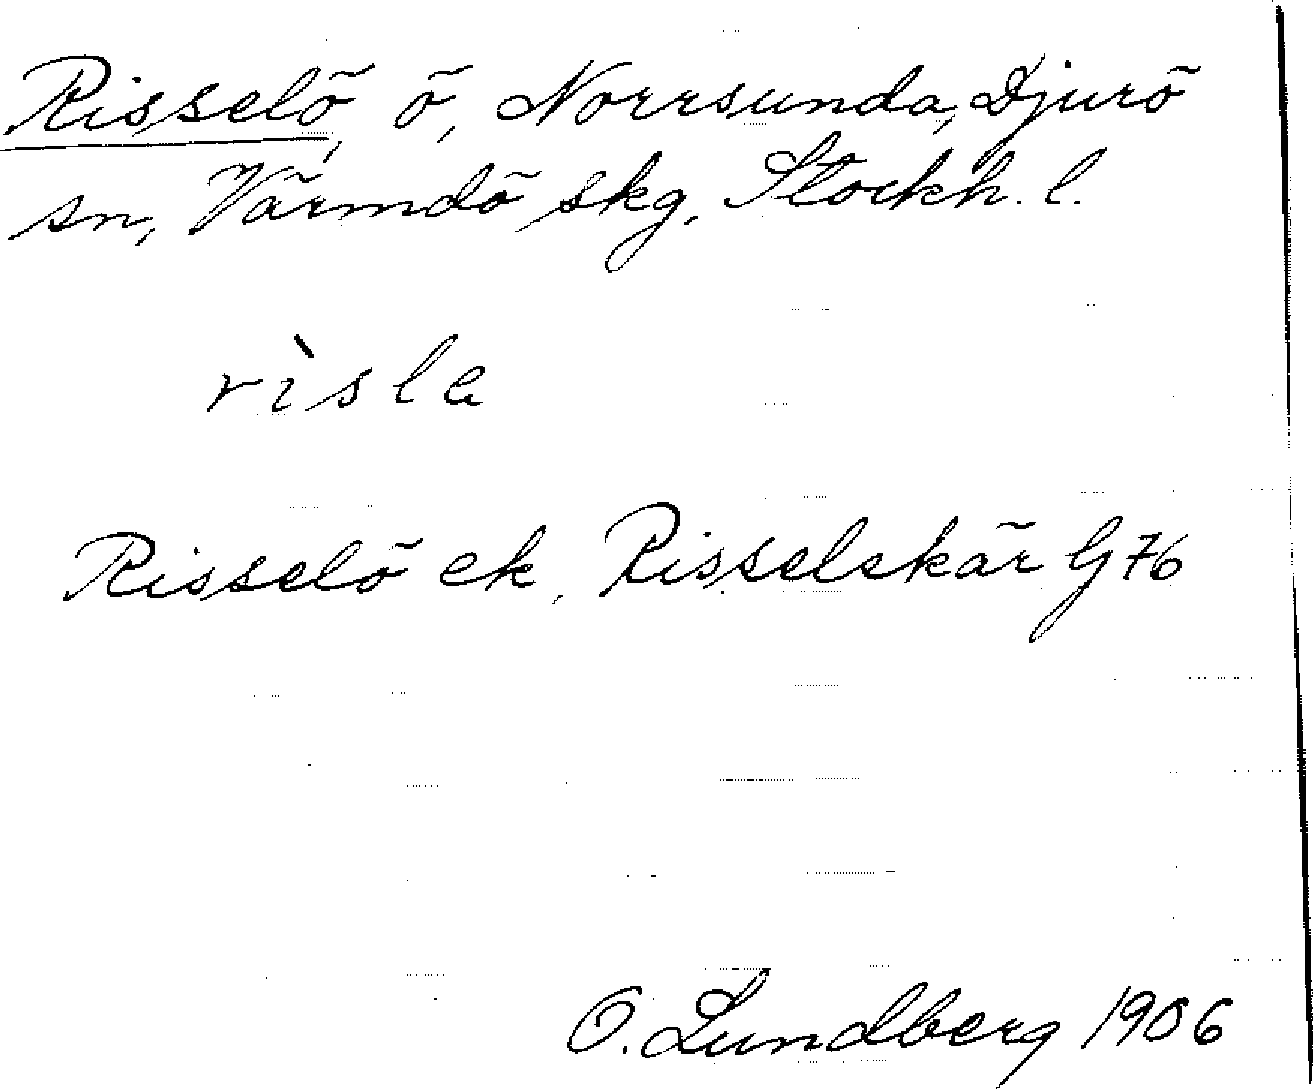 Risselö, ö, Norrsunda, Djurö
sn, Värmdö skg, Stockh. l.
rìsla
Risselö ek, Risselskär G 76
O. Lundberg 1906